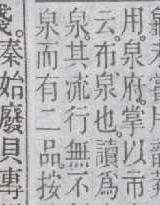 用。泉府。掌以市
云。布泉也。讀爲
泉。其流行無不
泉而有二品。按
秦始廢貝專